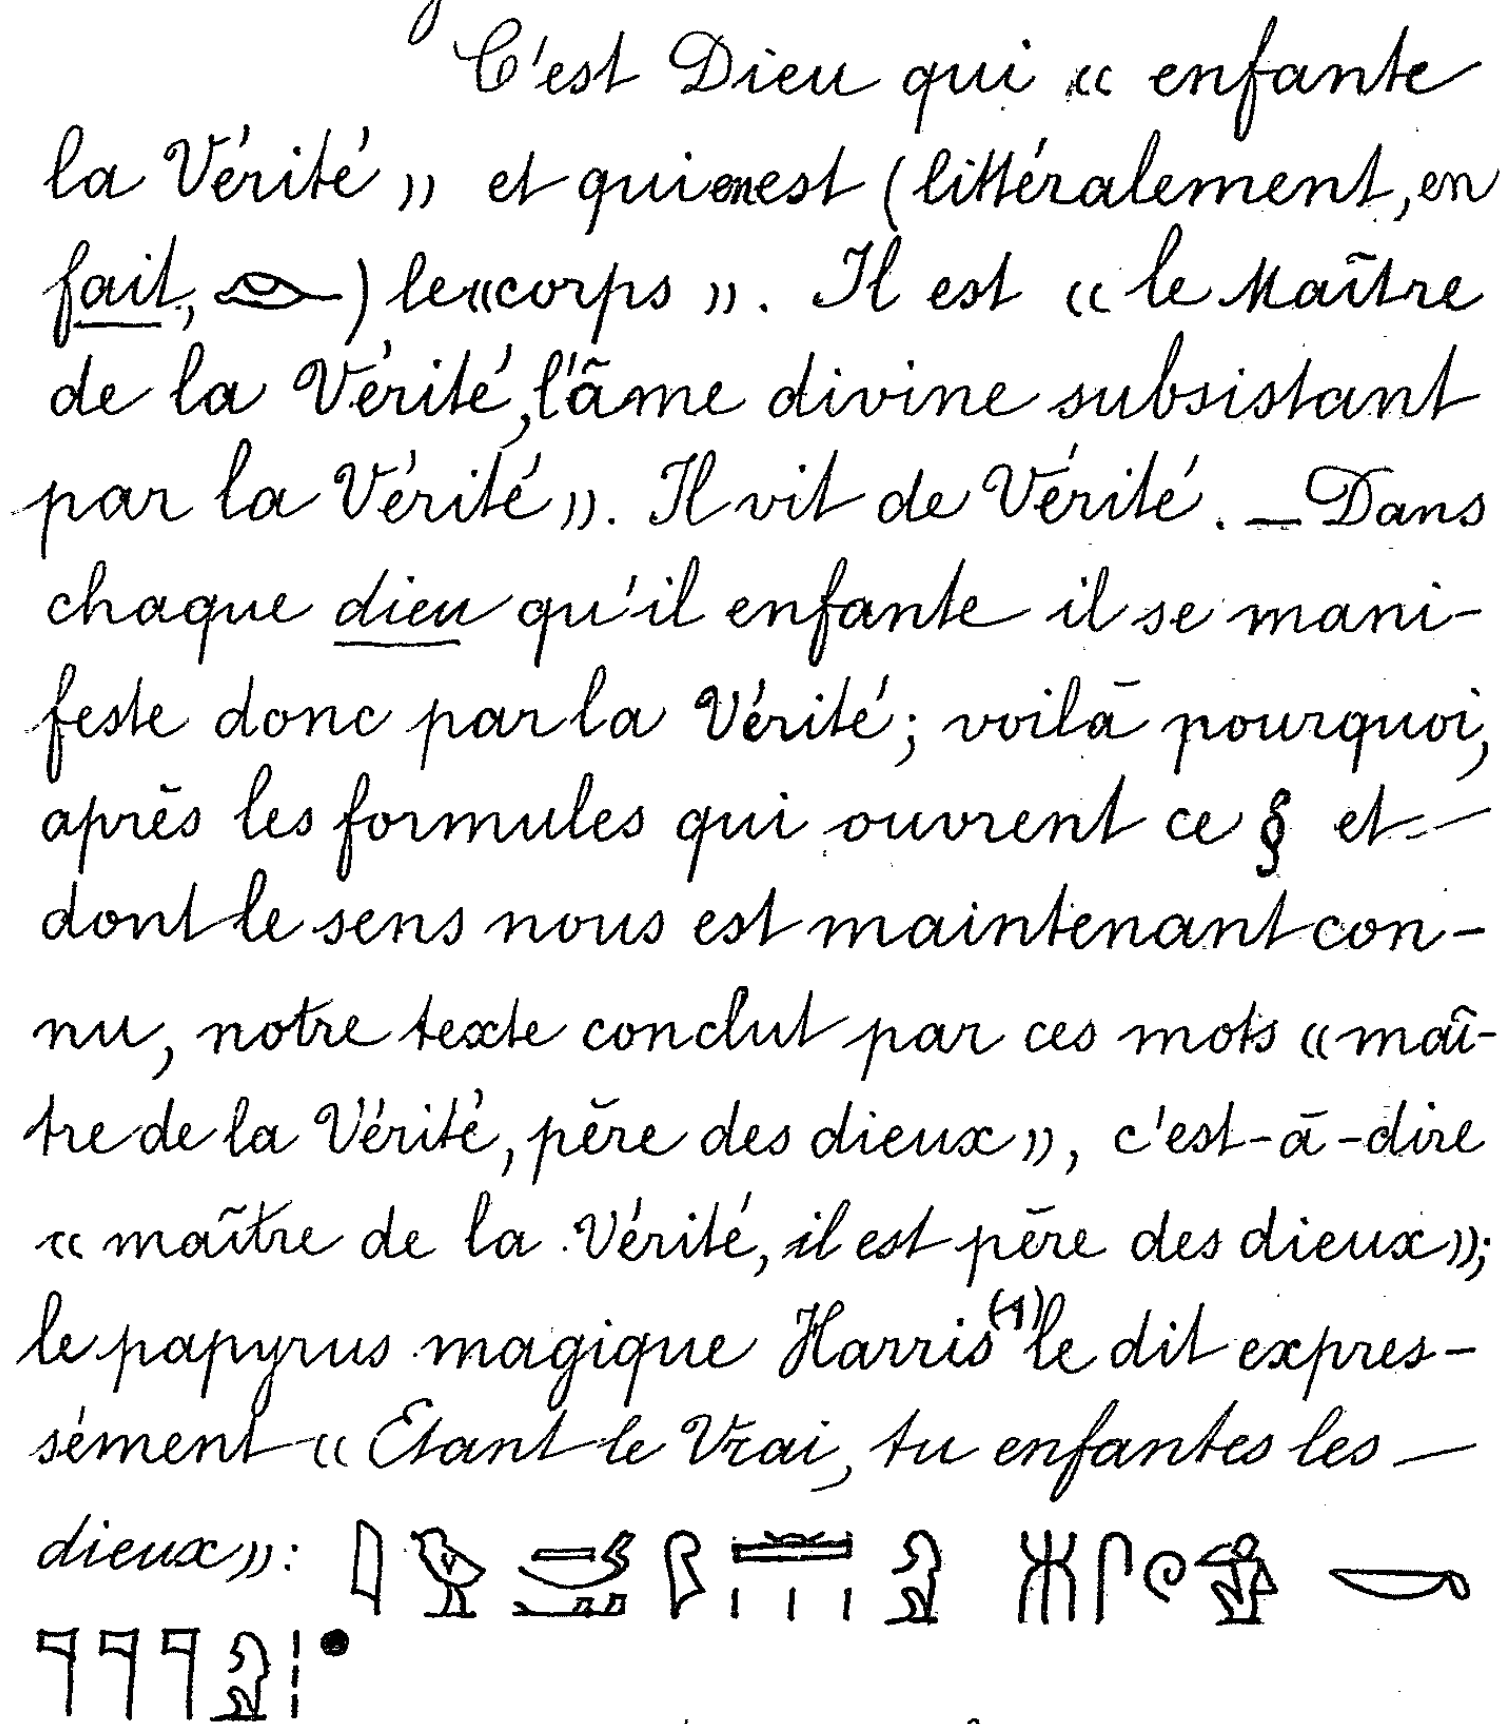 C'est Dieu qui « enfante
la Vérité » et qui en est (littéralement, en
fait, 𓁹) le « corps ». Il est « le Maître
de la Vérité, l'âme divine subsistant
par la Vérité ». Il vit de Vérité. — Dans
chaque dieu qu'il enfante il se mani-
feste donc par la Vérité; voilà pourquoi,
après les formules qui ouvrent ce § et —
dont le sens nous est maintenant con-
nu, notre texte conclut par ces mots « maî-
tre de la Vérité, père des dieux », c'est-à-dire
« maître de la Vérité, il est père des dieux »;
le papyrus magique Harris (1) le dit expres-
sément « Etant le Vrai, tu enfantes les —
dieux »: